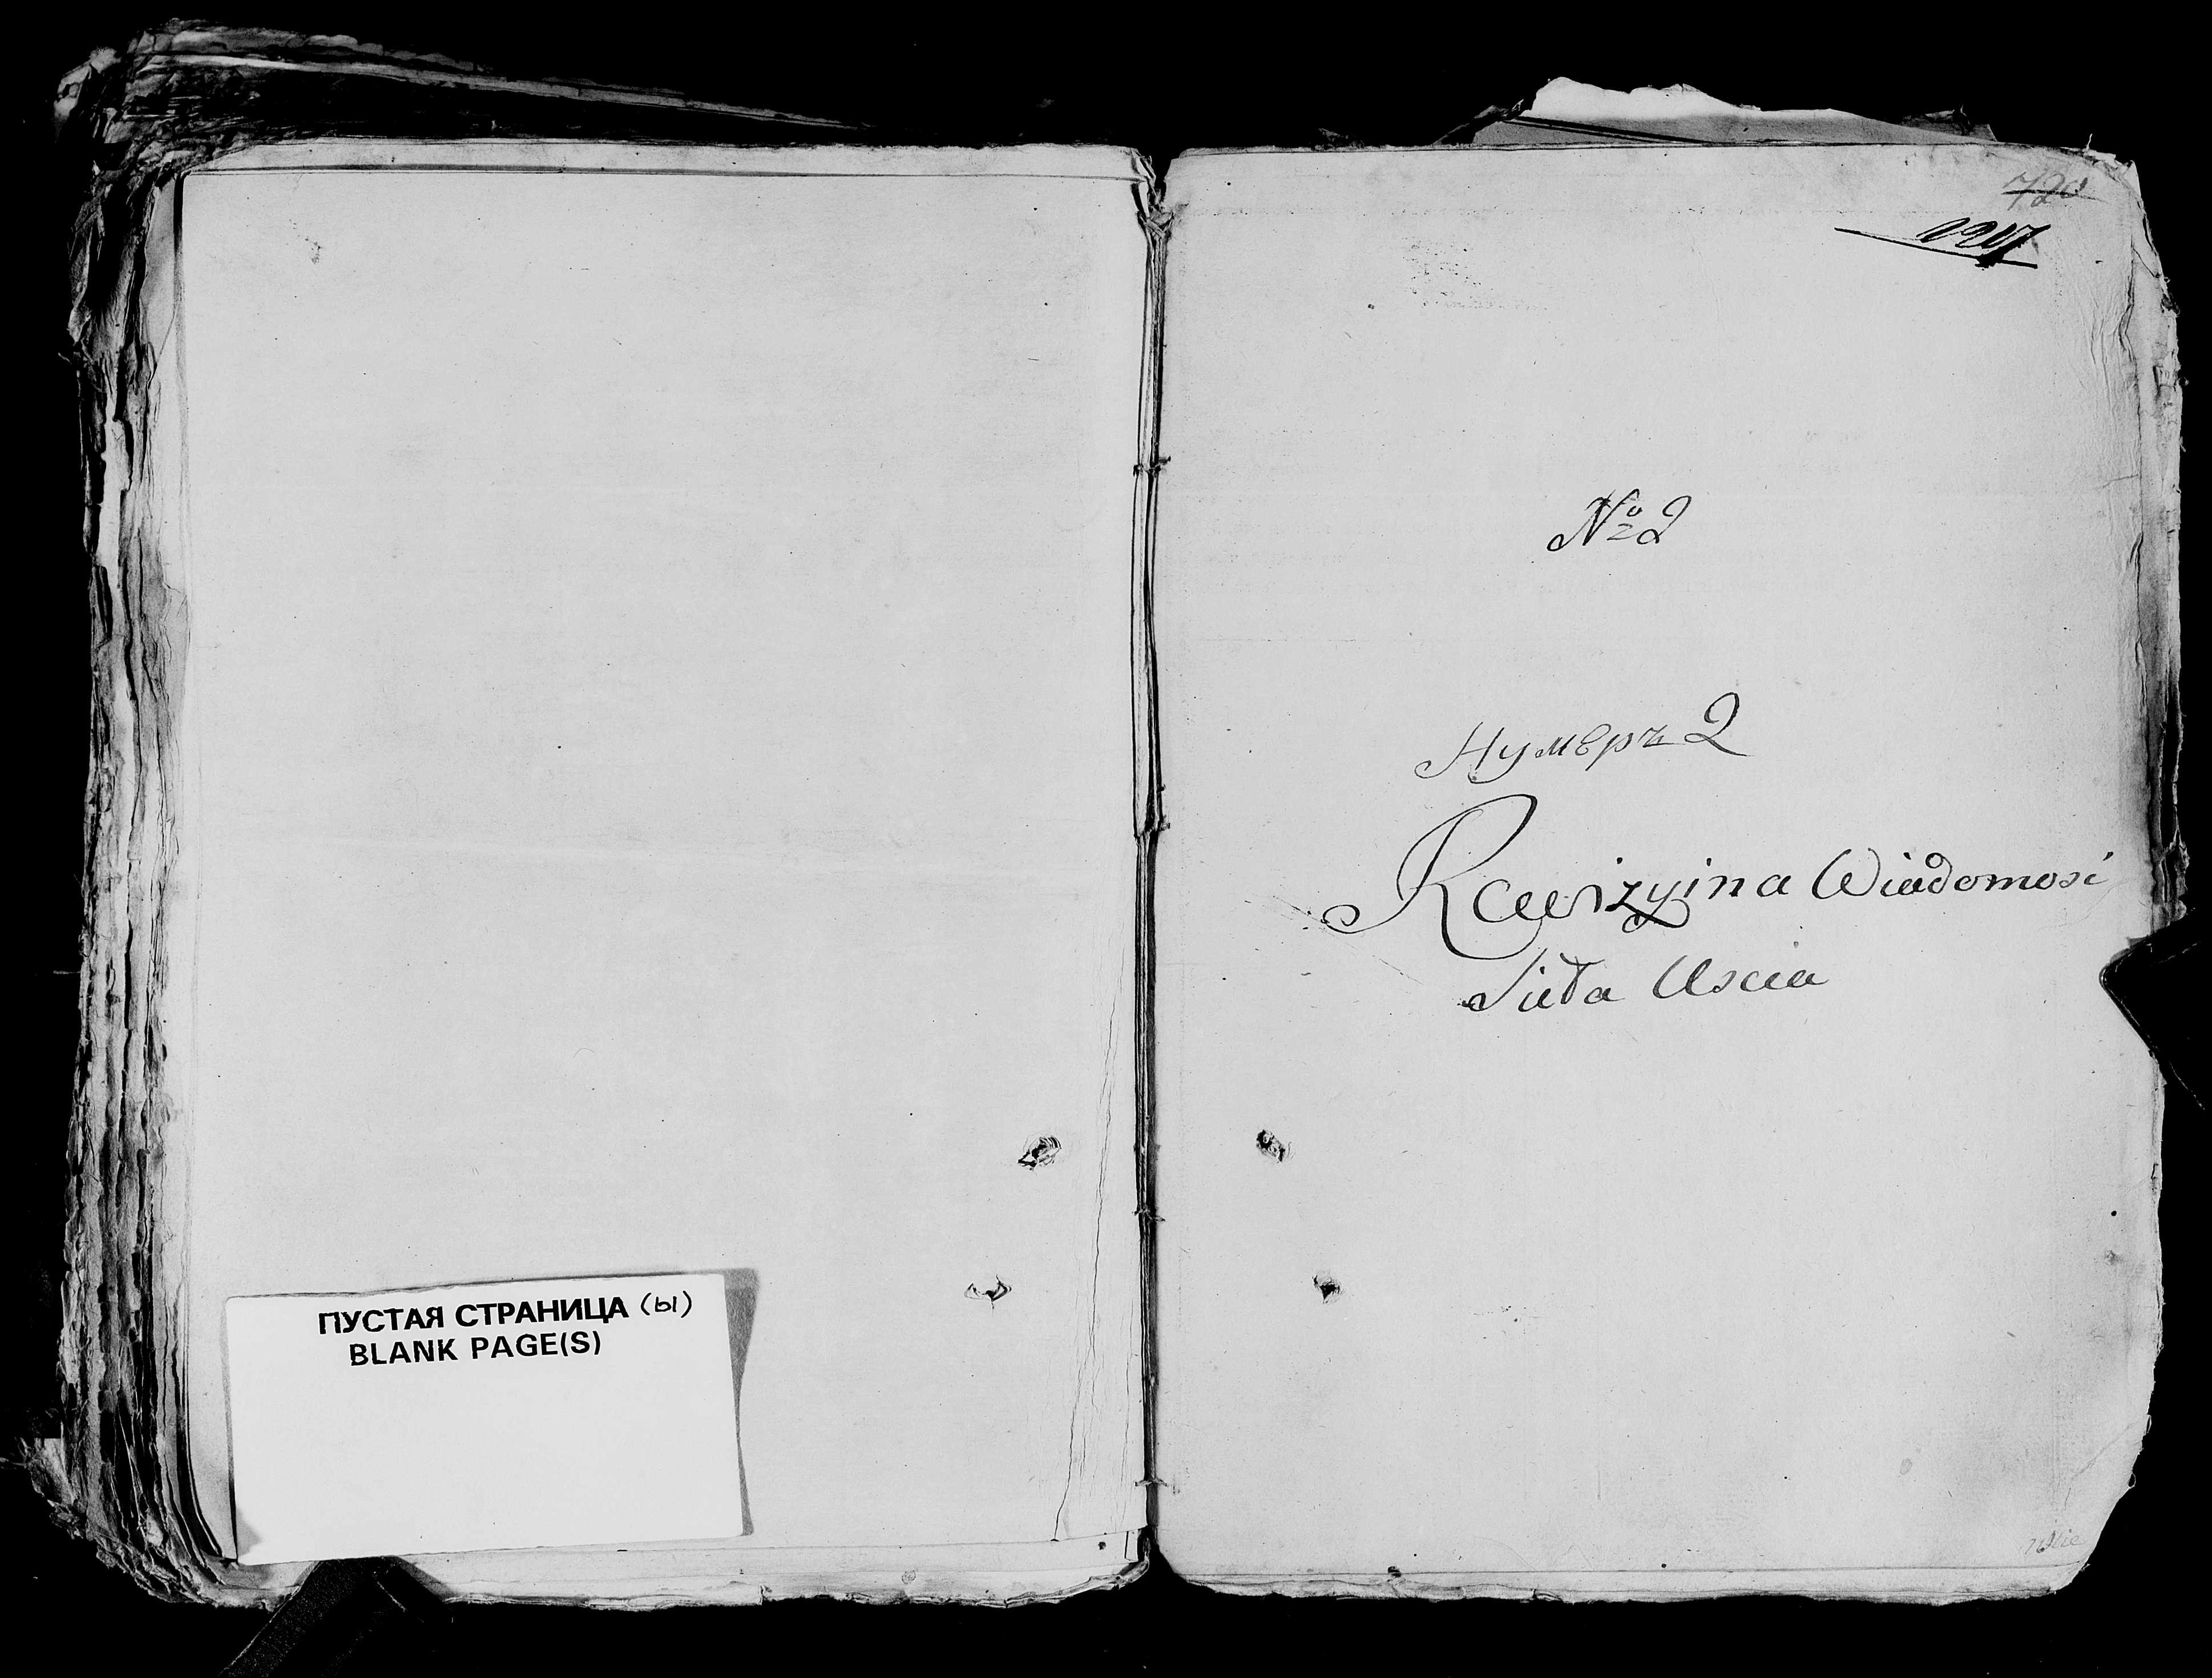 ПУСТАЯ СТРАНИЦА (Ы)
BLANK PAGE(S)
№ 2
Нумеръ 2
Rewizyina Wiadomosć
Sioła Uscia